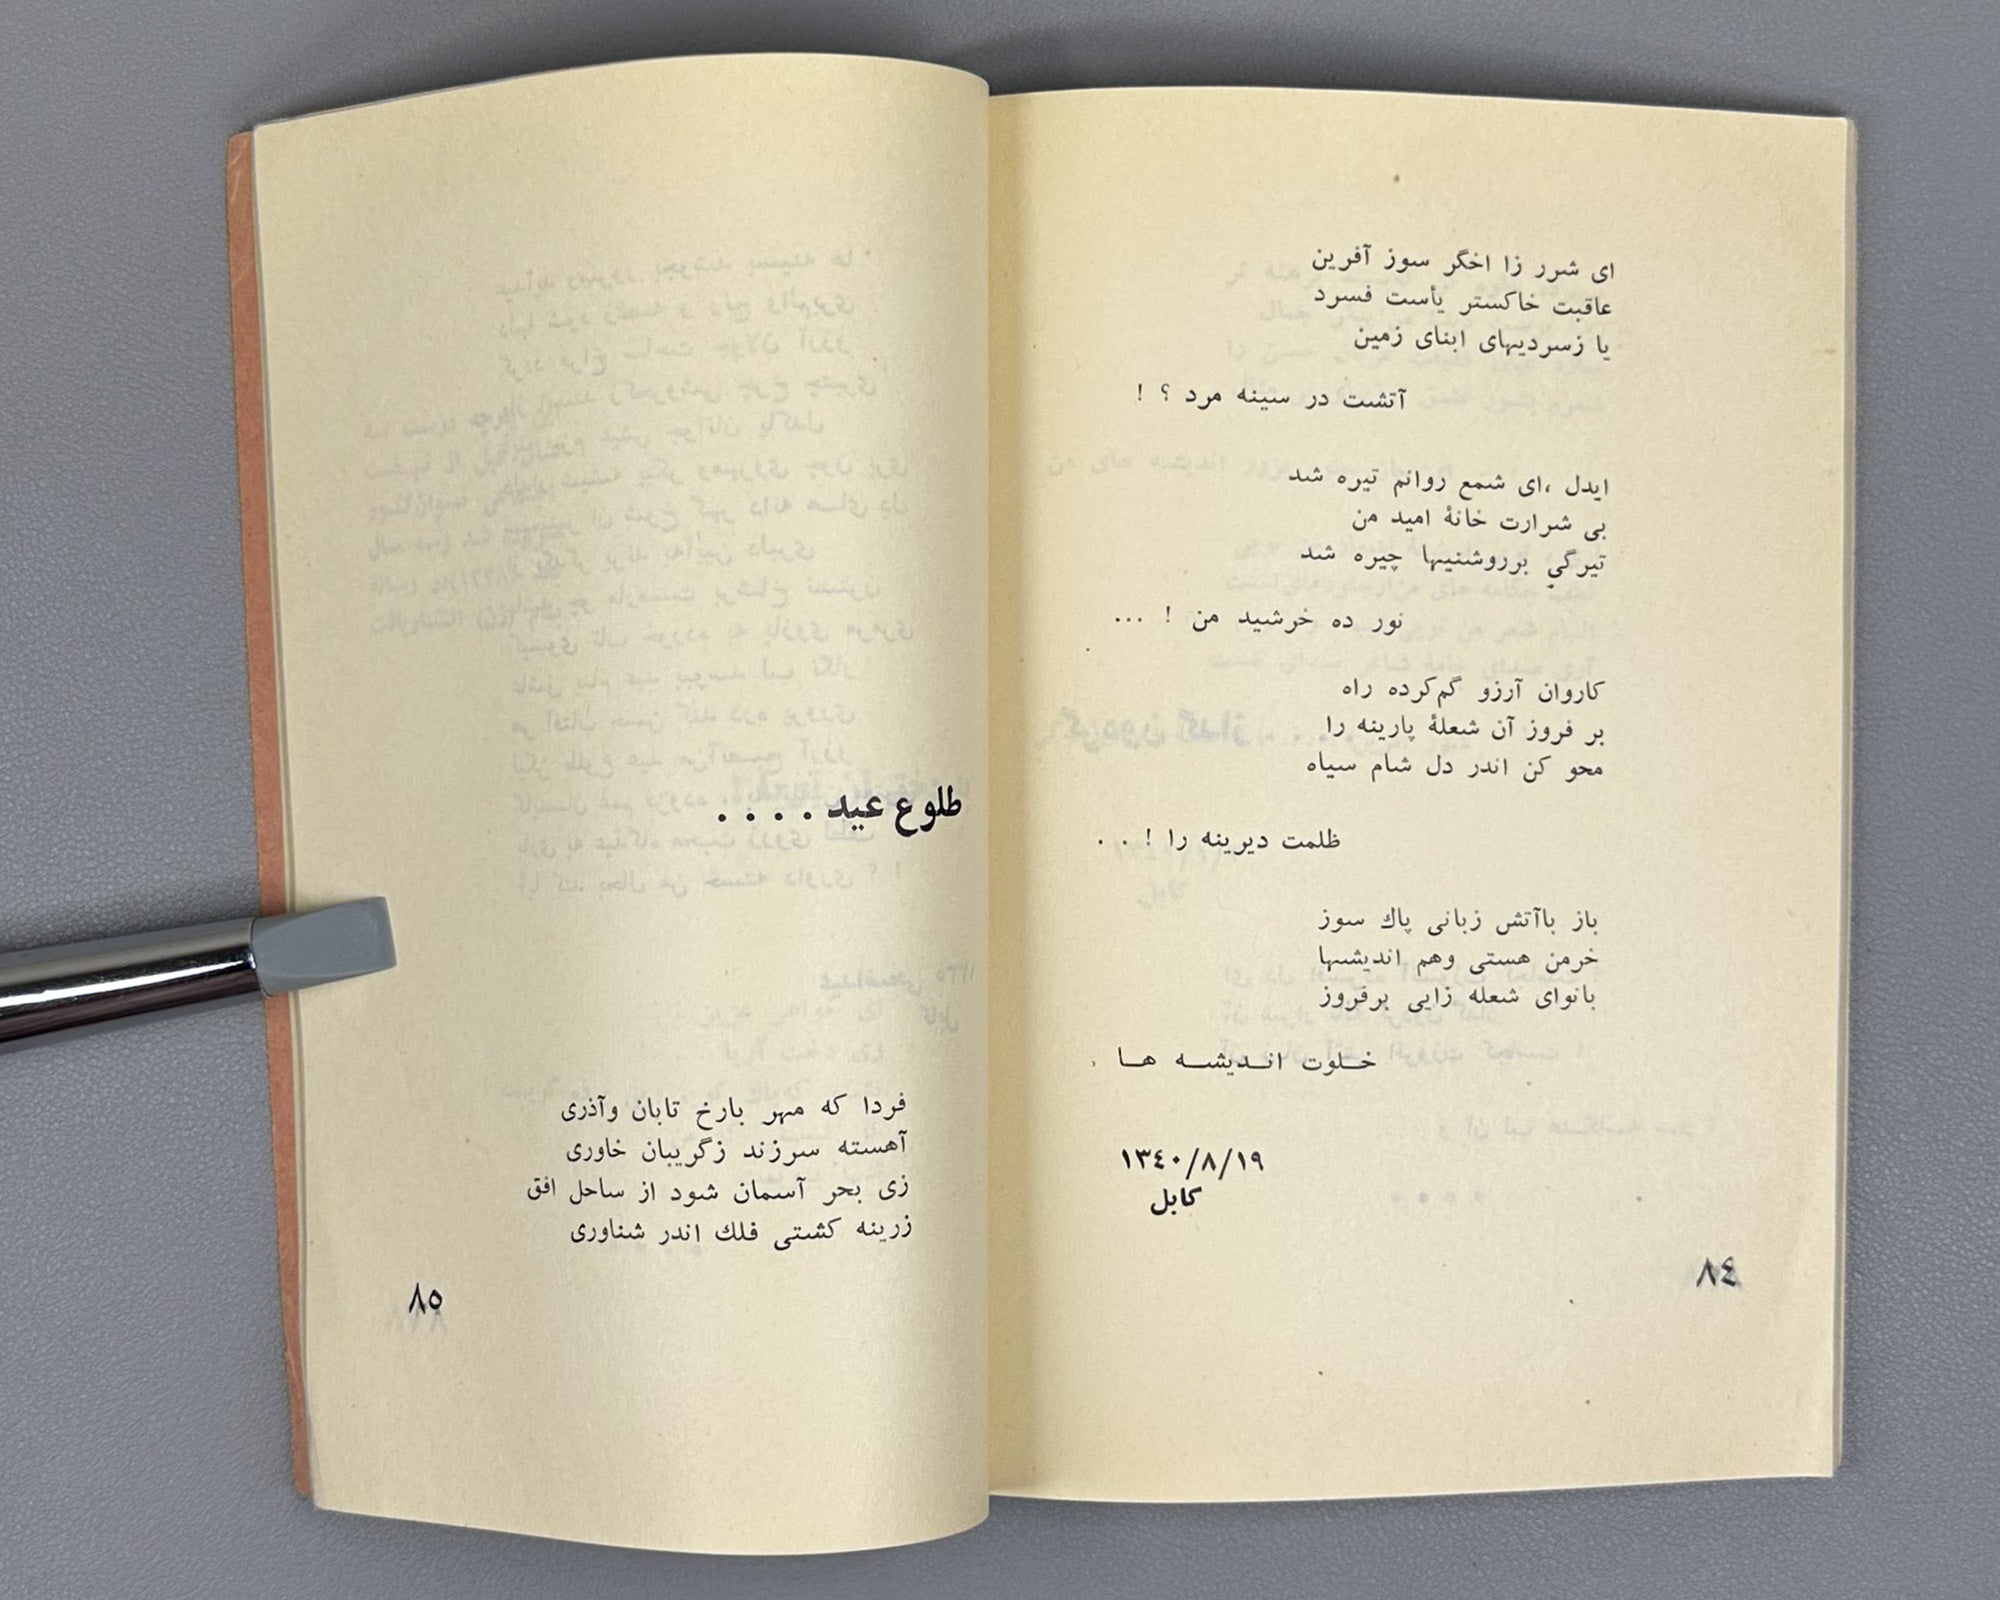 ای شرر زا اخگر سوز آفرین
عاقبت خاکستر یأست فسرد
یا زسردیهای ابنای زمین
آتشت در سینه مرد ؟ !
ایدل ،ای شمع روانم تیره شد
بی شرارت خانهٔ امید من
تیرگی برروشنیها چیره شد
نور ده خرشید من ! ...
کاروان آرزو گم‌کرده راه
بر فروز آن شعلهٔ پارینه را
محو کن اندر دل شام سیاه
ظلمت دیرینه را ! . .
باز باآتش زبانی پاك سوز
خرمن هستی وهم اندیشها
بانوای شعله زایی برفروز
خلوت اندیشه ها .
۱۳٤۰/۸/۱۹
کابل
۸٤
طلوع عید . . . .
فردا که مهر بارخ تابان وآذری
آهسته سرزند زگریبان خاوری
زی بحر آسمان شود از ساحل افق
زرینه کشتی فلك اندر شناوری
۸۵